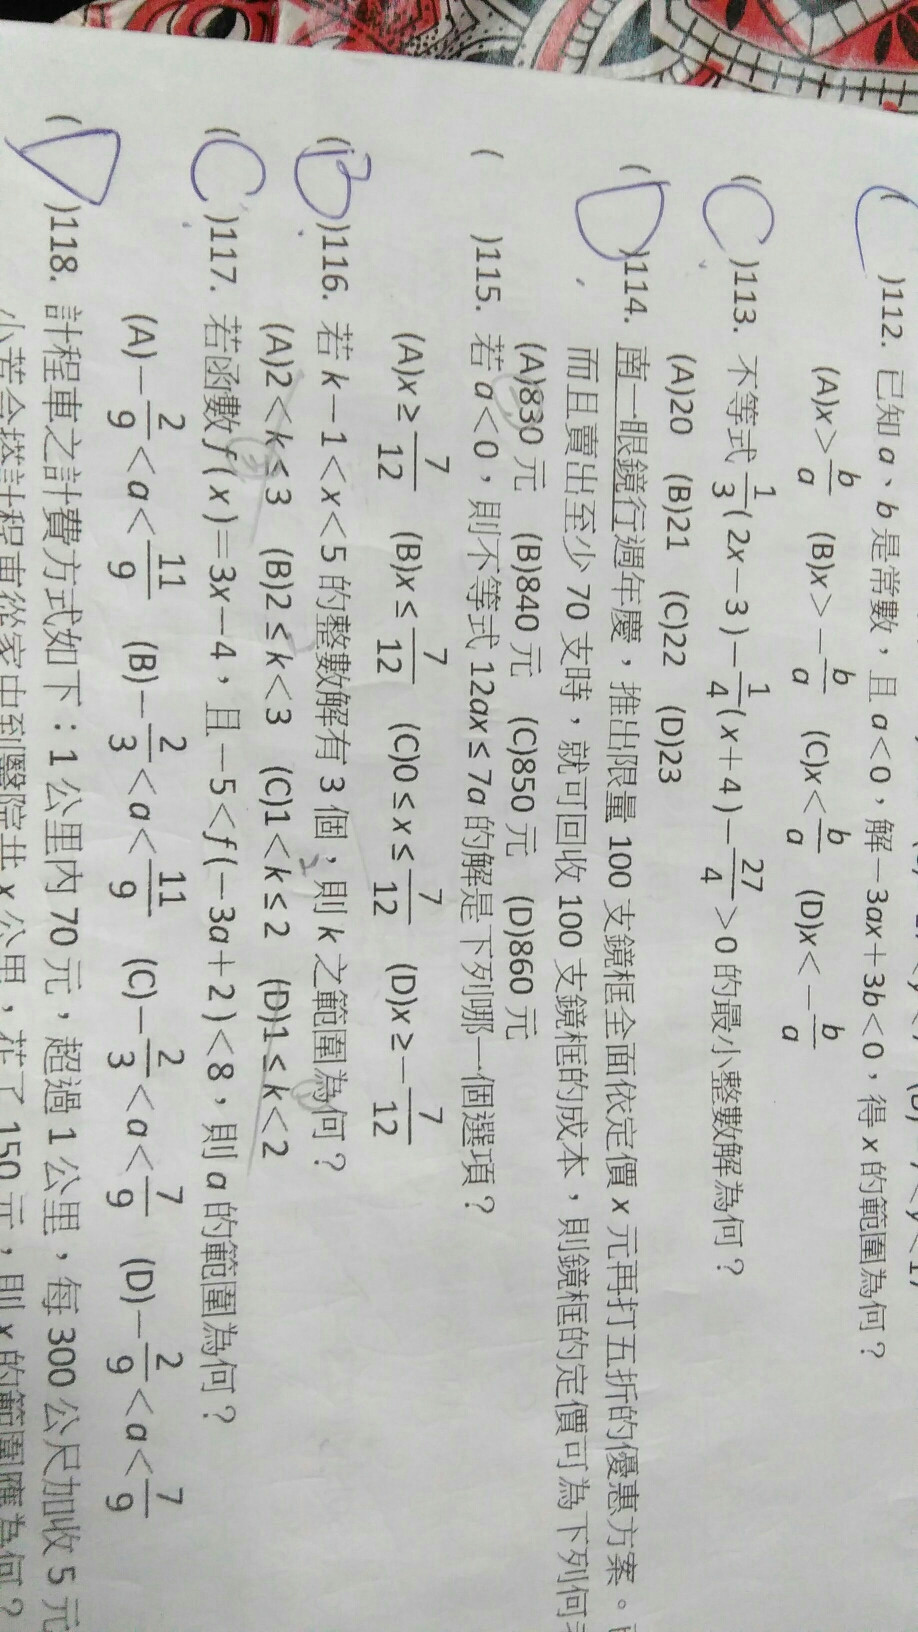 (C)112. 已知 a、b 是常數，且 a<0，解－3ax＋3b<0，得 x 的範圍為何？
(A)x>b/a (B)x>－b/a (C)x<b/a (D)x<－b/a
(C)113. 不等式 1/3(2x－3)－1/4(x＋4)－27/4>0 的最小整數解為何？
(A)20 (B)21 (C)22 (D)23
(D)114. 南一眼鏡行週年慶，推出限量 100 支鏡框全面依定價 x 元再打五折的優惠方案。
而且賣出至少 70 支時，就可回收 100 支鏡框的成本，則鏡框的定價可為下列何
(A)830 元 (B)840 元 (C)850 元 (D)860 元
( )115. 若 a<0，則不等式 12ax≤7a 的解是下列哪一個選項？
(A)x≥7/12 (B)x≤7/12 (C)0≤x≤7/12 (D)x≥－7/12
(B)116. 若 k－1<x<5 的整數解有 3 個，則 k 之範圍為何？
(A)2<k≤3 (B)2≤k<3 (C)1<k≤2 (D)1≤k<2
(C)117. 若函數 f(x)=3x－4，且－5<f(－3a＋2)<8，則 a 的範圍為何？
(A)－2/9<a<11/9 (B)－2/3<a<11/9 (C)－2/3<a<7/9 (D)－2/9<a<7/9
(D)118. 計程車之計費方式如下：1 公里內 70 元，超過 1 公里，每 300 公尺加收 5 元
小芳今搭計程車從家中到醫院共 x 公里，花了 150 元，則 x 的範圍應為何？